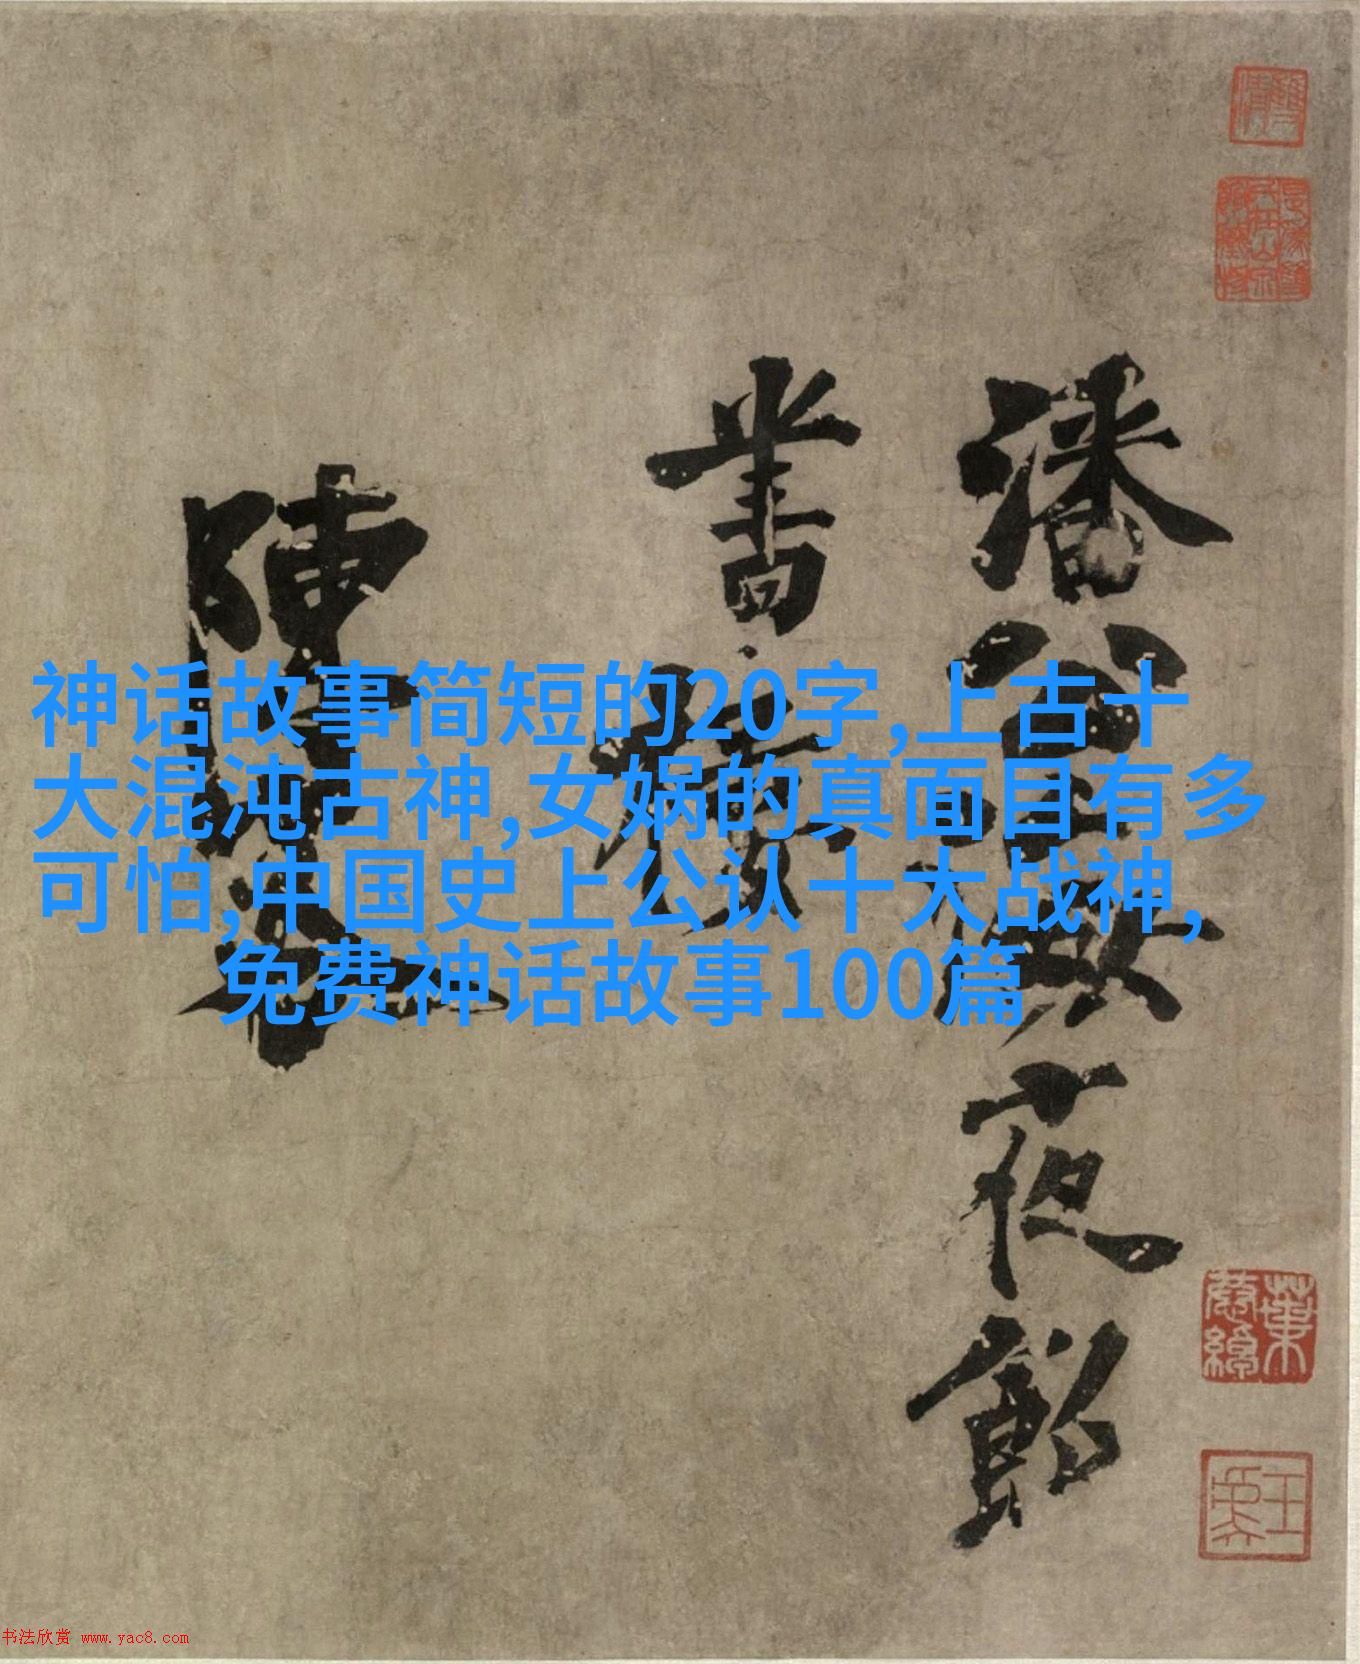 潘公海夜飲
書樓
神话故事简短的20字,上古十
大混沌古神,女娲的真面目有多
可怕,中国史上公认十大战神,
免费神话故事100篇
书法欣赏 www.yac8.com